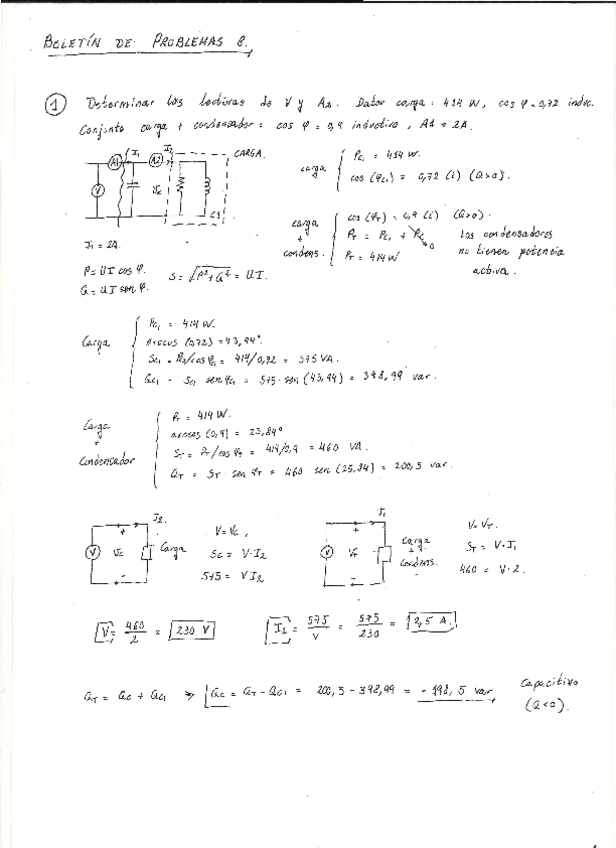 BOLETÍN DE PROBLEMAS 8.
① Determinar las lecturas de V y A2. Datos carga: 414 W, cos φ = 0,72 induc.
Conjunto carga + condensador: cos φ = 0,9 inductivo, A1 = 2A.
I1 I2 CARGA.
A1 A2
V Uc
C1
I1 = 2A.
P = UI cos φ.
Q = UI sen φ.
S = √P²+Q² = UI.
carga
Pc1 = 414 W.
cos (φc1) = 0,72 (i) (Q>0).
carga + condens.
cos (φT) = 0,9 (i) (Q>0)
PT = Pc1 + Pc
PT = 414 W
Los condensadores no tienen potencia activa.
Carga
Pc1 = 414 W.
arccos (0,72) = 43,94°.
Sc1 = P1/cos φ1 = 414/0,72 = 575 VA.
Qc1 = Sc1 sen φc1 = 575 · sen (43,94) = 398,99 var.
Carga + Condensador
PT = 414 W.
arccos (0,9) = 25,84°
ST = PT/cos φT = 414/0,9 = 460 VA.
QT = ST · sen φT = 460 sen (25,84) = 200,5 var.
I2.
V Uc Carga
V = Vc,
Sc = V · I2
575 = V I2
I1
V VT Carga + Condens.
V = VT.
ST = V · I1
460 = V · 2.
V = 460/2 = 230 V
I2 = 575/V = 575/230 = 2,5 A.
QT = Qc + Qc1 ⇒ Qc = QT - Qc1 = 200,5 - 398,99 = -198,5 var, Capacitivo (Q<0).